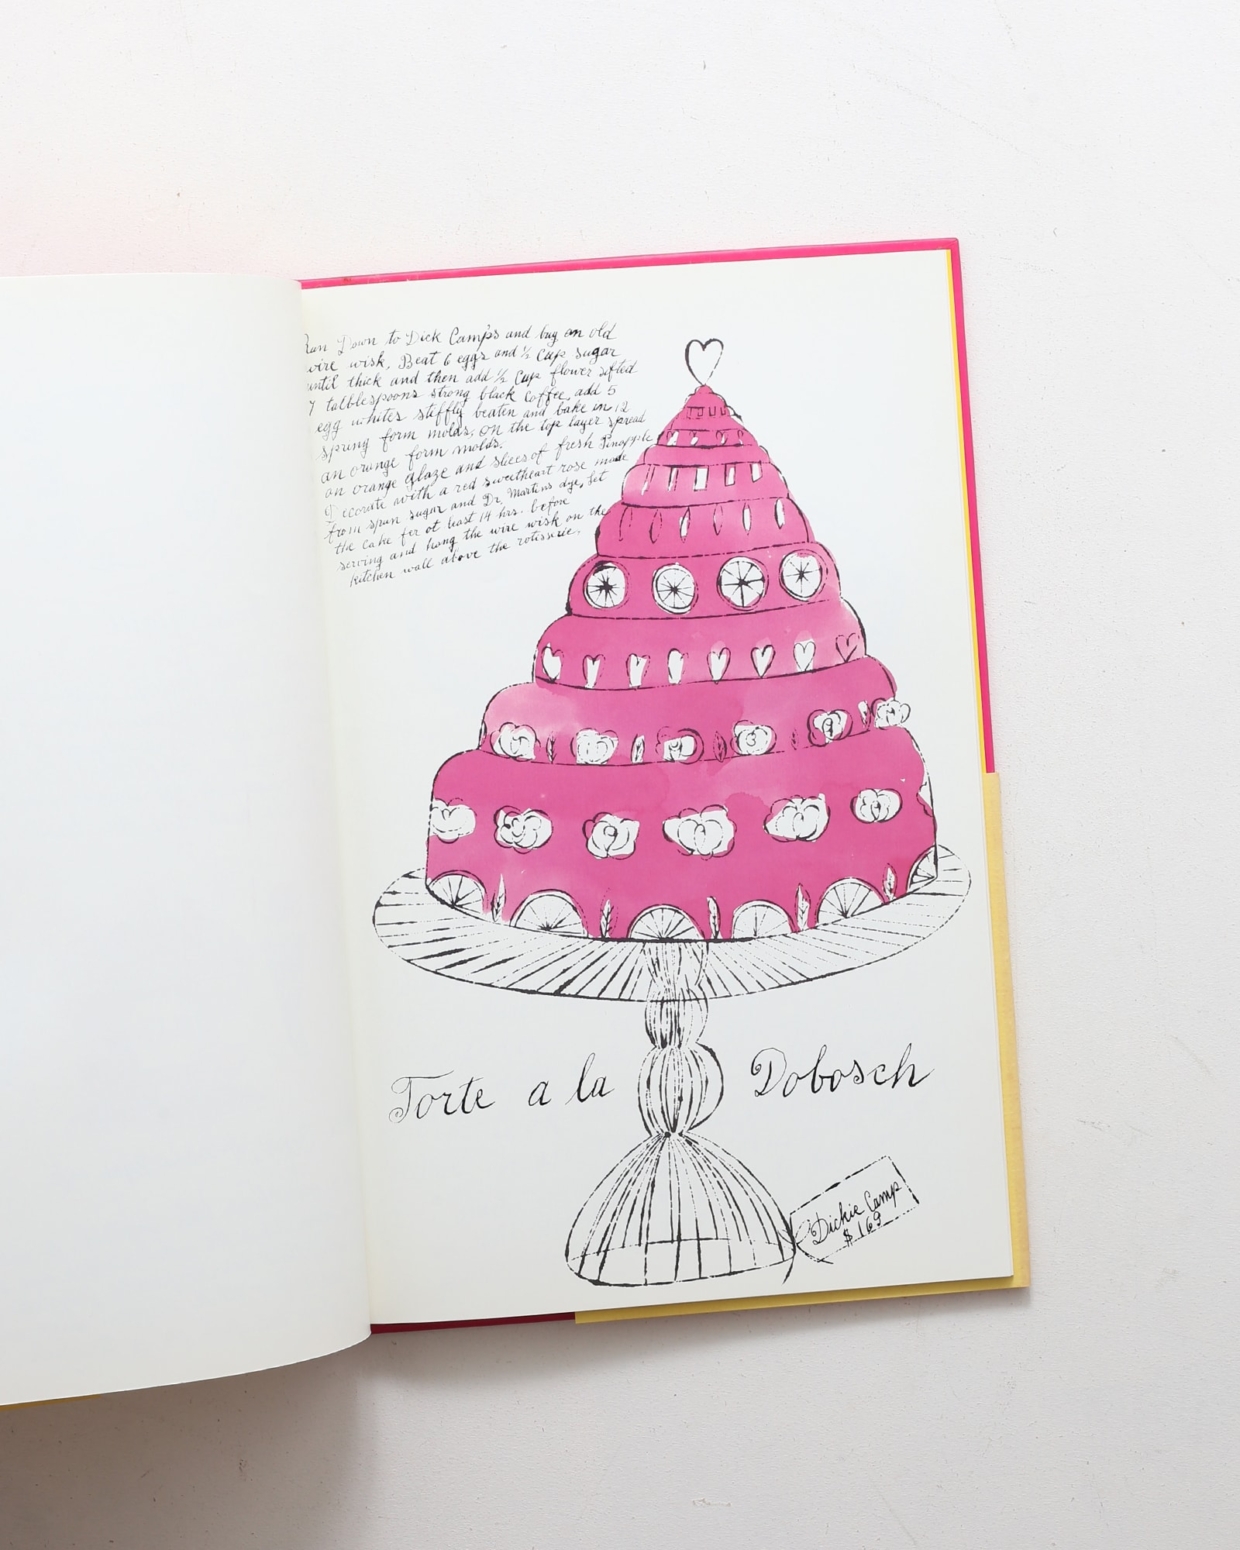 Run Down to Dick Camps and buy an old
wire wisk, Beat 6 eggs and ½ Cup sugar
until thick and then add ½ Cup flower sifted
7 talblespoons strong black Coffee, add 5
egg whites stiffly beaten and bake in 12
spring form molds, on the top layer spread
an orange form molds.
an orange glaze and slices of fresh Pineapple
decorate with a red sweetheart rose made
from spun sugar and Dr. Martins dye, let
the cake for at least 14 hrs. before
serving and hang the wire wisk on the
Kitchen wall above the rotisserie.
Torte a la Dobosch
Dickie Camp
$ 169